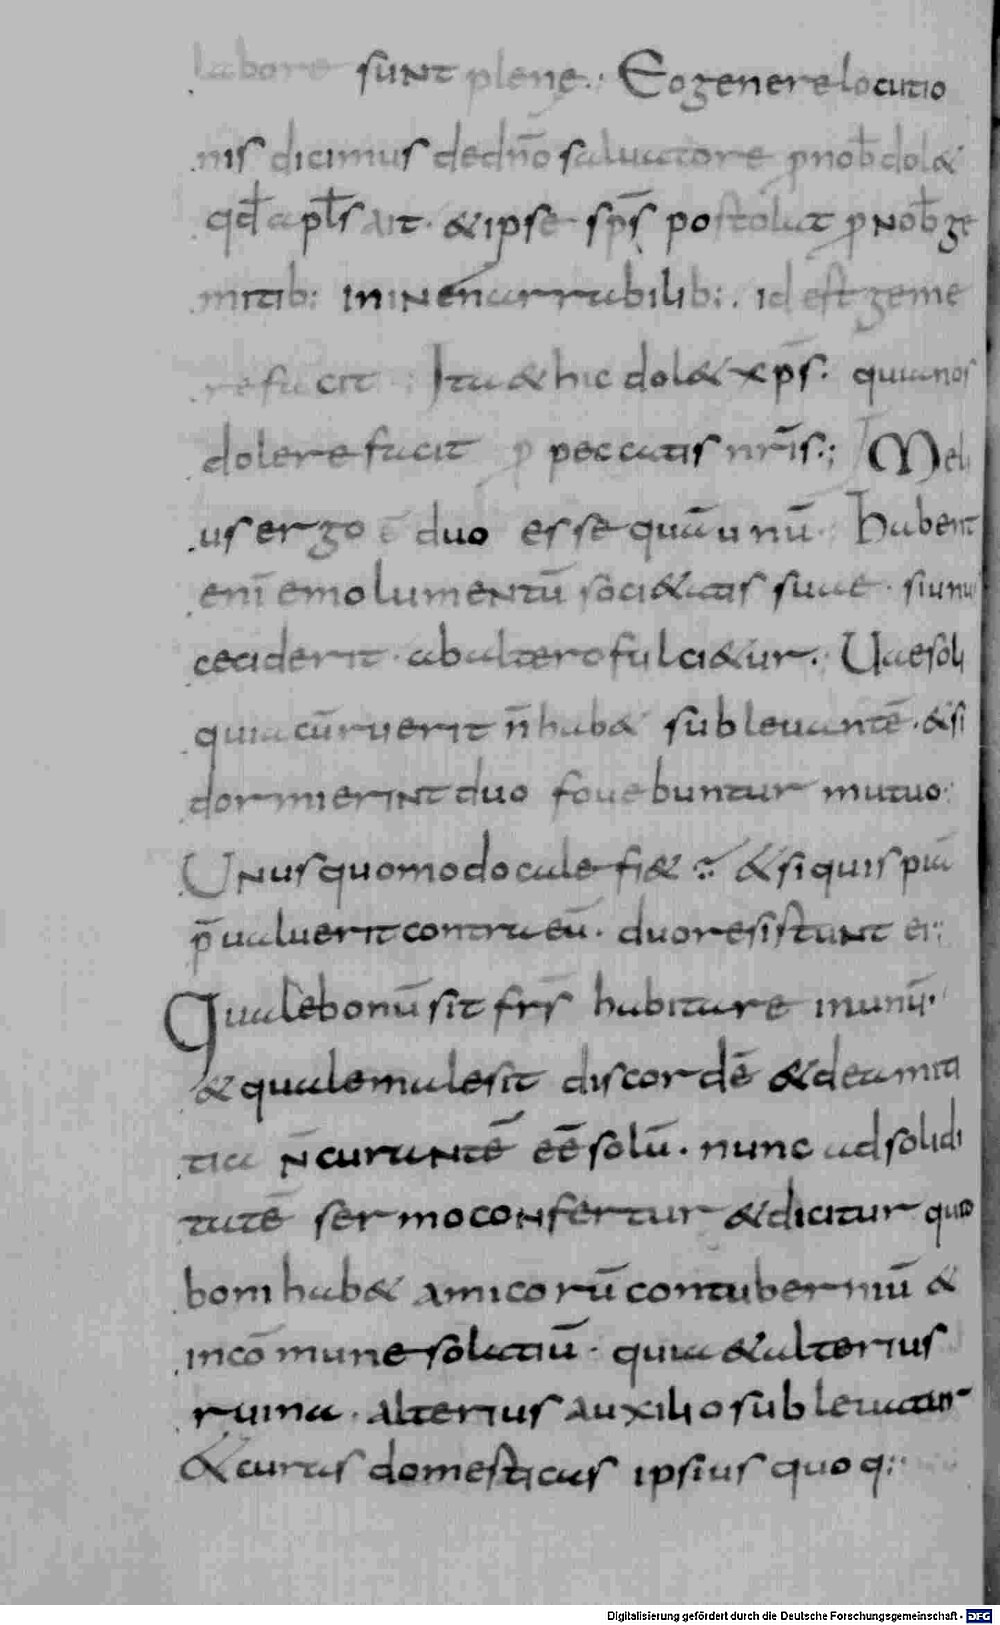 labore sunt plenę. Eo genere locutio
nis dicimus de dño saluatore ꝑ nob̄ dol&
qđ apl̄s ait. & ipse sp̄s postolat ꝑ nob̄ ge
mitib: in inenarrabilib:. id est geme
re facit. Ita & hic dol& xp̄s. quia nos
dolere facit ꝑ peccatis nr̄is.; Meli
us ergo ē duo esse quā unū. Habent
enī emolumentū soci&atis suae. si unu
ceciderit. ab altero fulci&ur. Uae soli
quia cū ruerit n̄ hab& subleuantē. & si
dormierint duo fouebuntur mutuo:
Unus quomodo calefi&? & si quispiā
p̄ualuerit contra eū. duo resistunt ei:
Quale bonū sit frs̄ habitare in unū.
& quale male sit discordē & de amici
tia n̄ curantē eē solū. nunc ad solidi
tatē sermo confertur & dicitur quid
boni hab& amicorū contuberniū &
in cōmune solatiū. quia & alterius
ruina. alterius auxilio subleuatur
& curas domesticas ipsius quoq: